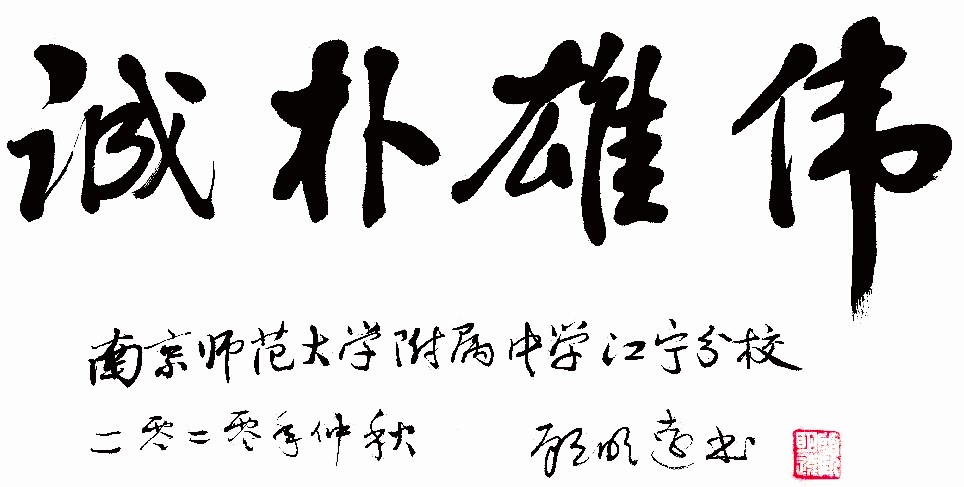 诚朴雄伟
南京师范大学附属中学江宁分校
二零二零年仲秋 顾明远书